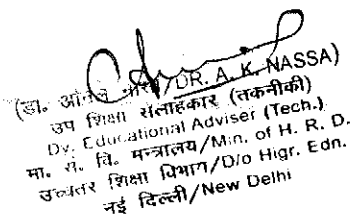 (डा. /DR. A. K. NASSA)
उप शिक्षा सलाहकार (तकनीकी)
Dy. Educational Adviser (Tech.)
मा. सं. वि. मन्त्रालय/Min. of H. R. D.
उच्चतर शिक्षा विभाग/D/o Higr. Edn.
नई दिल्ली/New Delhi